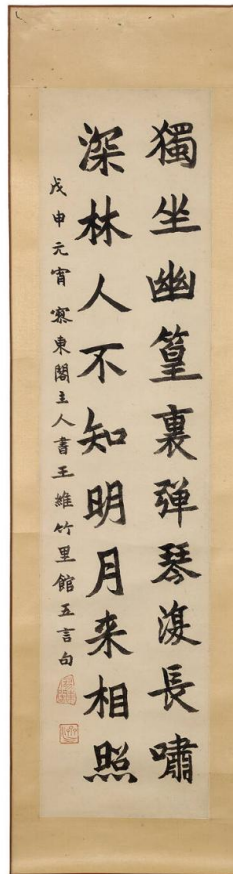 獨坐幽篁裏弹琴復長嘯
深林人不知明月来相照
戊申元宵寮東閣主人書王維竹里館五言句